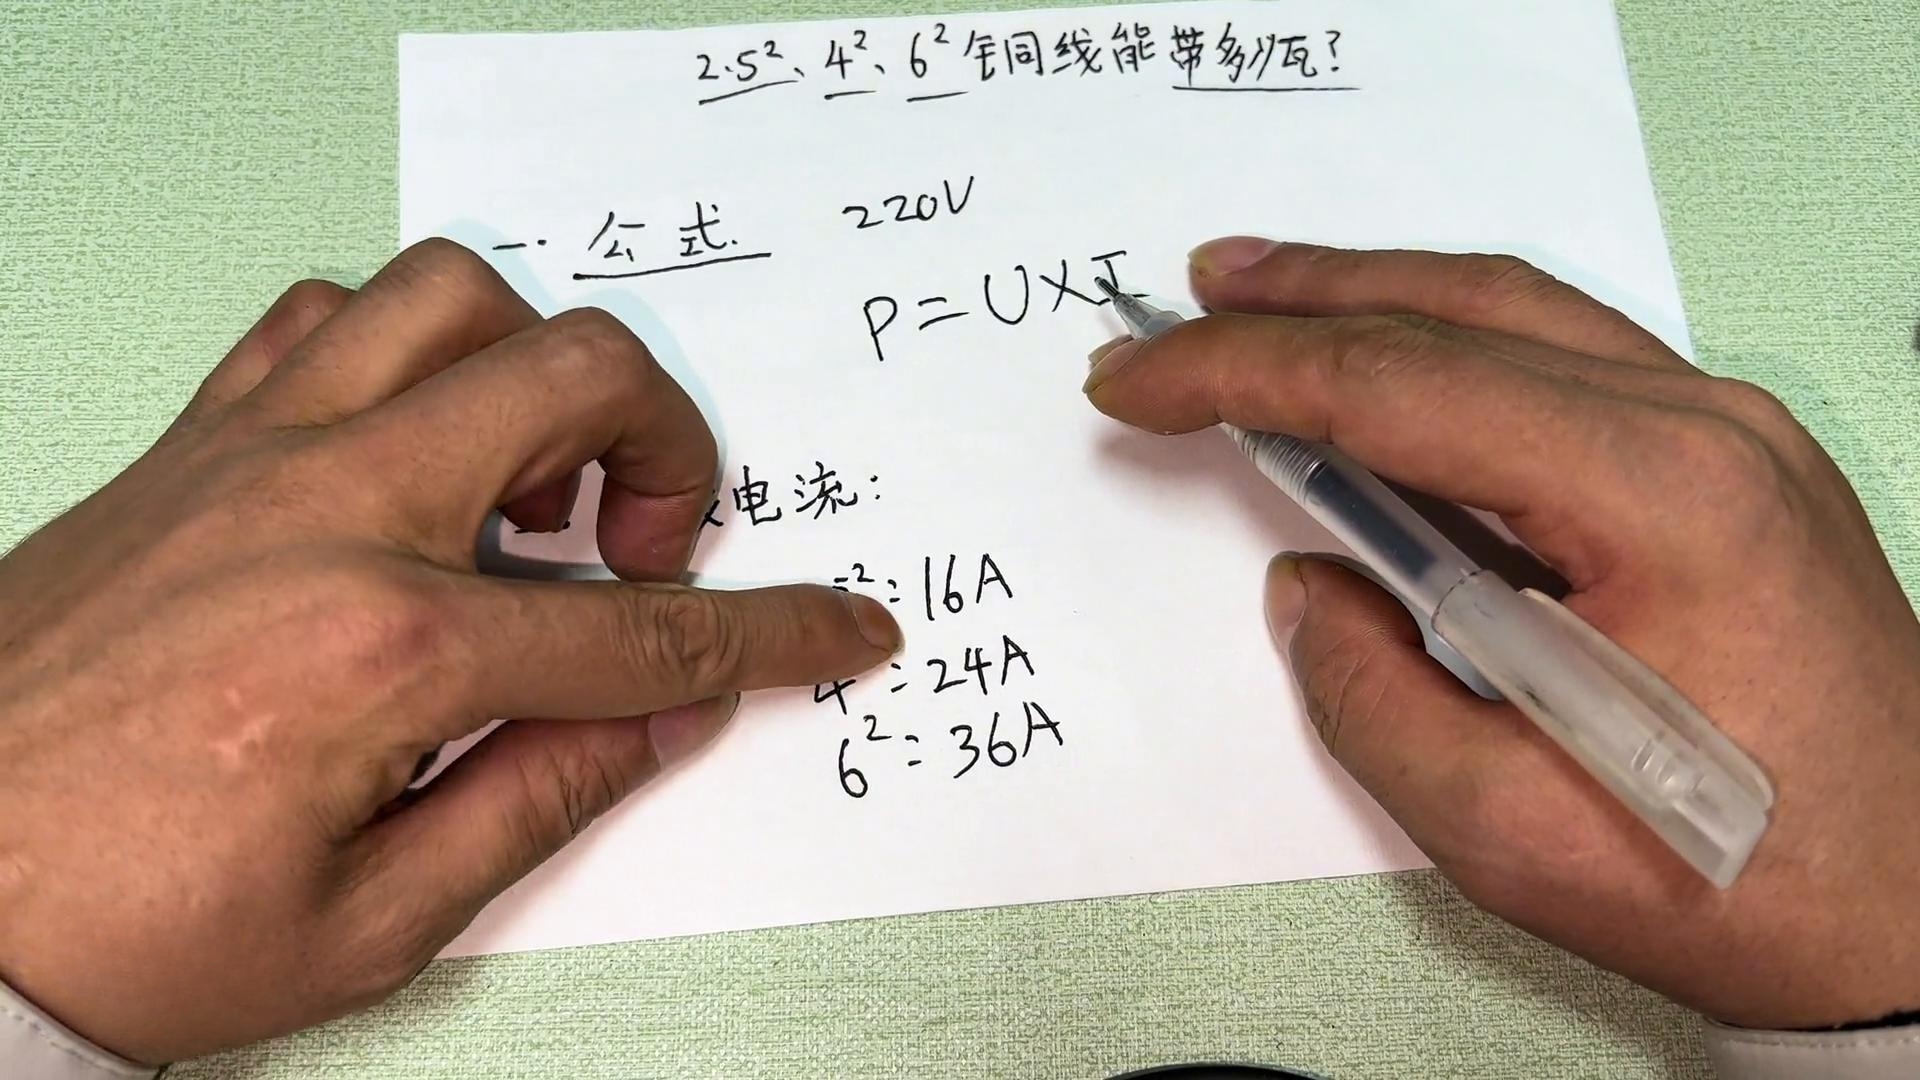 2.5²、4²、6²铜线能带多少瓦？
一. 公式.
220V
P=U×I
电流：
²：16A
4：24A
6²：36A